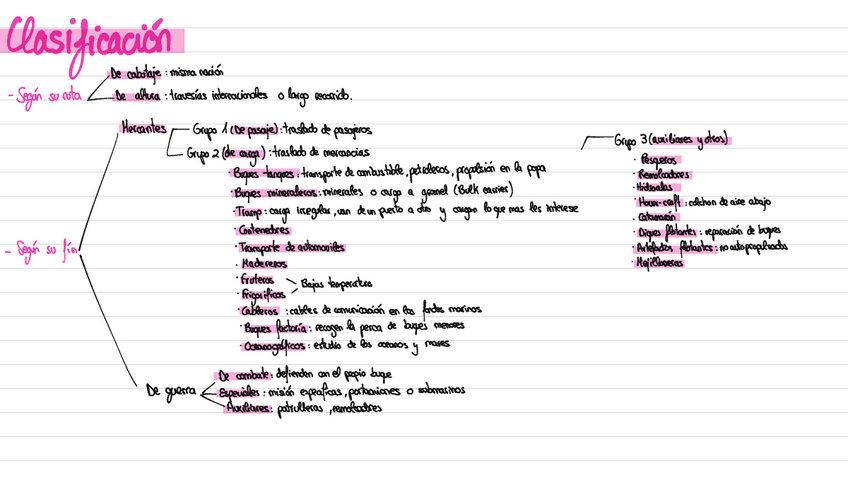 Clasificación
- Según su ruta
De cabotaje : misma nación
De altura : travesías internacionales o largo recorrido.
- Según su fin
Mercantes
Grupo 1 (De pasaje) : traslado de pasajeros
Grupo 2 (de carga) : traslado de mercancías
· Buques tanques : transporte de combustible, petroleros, propulsión en la popa
· Buques mineraleros : minerales o carga a granel (Bulk carrier)
· Tramp : carga irregular, van de un puerto a otro y cargan lo que mas les interese
· Contenedores
· Transporte de automoviles
· Madereros
· Fruteros
· Frigorificos
Bajas temperatura
· Cableros : cables de comunicación en los fondos marinos
· Buques factoría : recogen la pesca de buques menores
· Oceanográficos : estudio de los oceanos y mares
Grupo 3 (auxiliares y otros)
· Pesqueros
· Remolcadores
· Hidroalas
· Hover-craft : colchon de aire abajo
· Catamarán
· Diques flotantes : reparación de buques
· Artefactos flotantes : no autopropulsados
· Mejilloneras
De guerra
De combate : defienden con el propio buque
Especiales : misión específicas, portaviones o submarinos
Auxiliares : patrulleras, remolcadores